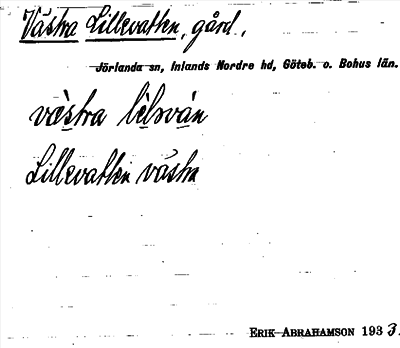 Västra Lillevatten, gård.,
Jörlanda sn, Inlands Nordre hd, Göteb. o. Bohus län.
västra lilsván
Lillevatten västra
ERIK ABRAHAMSON 1933.